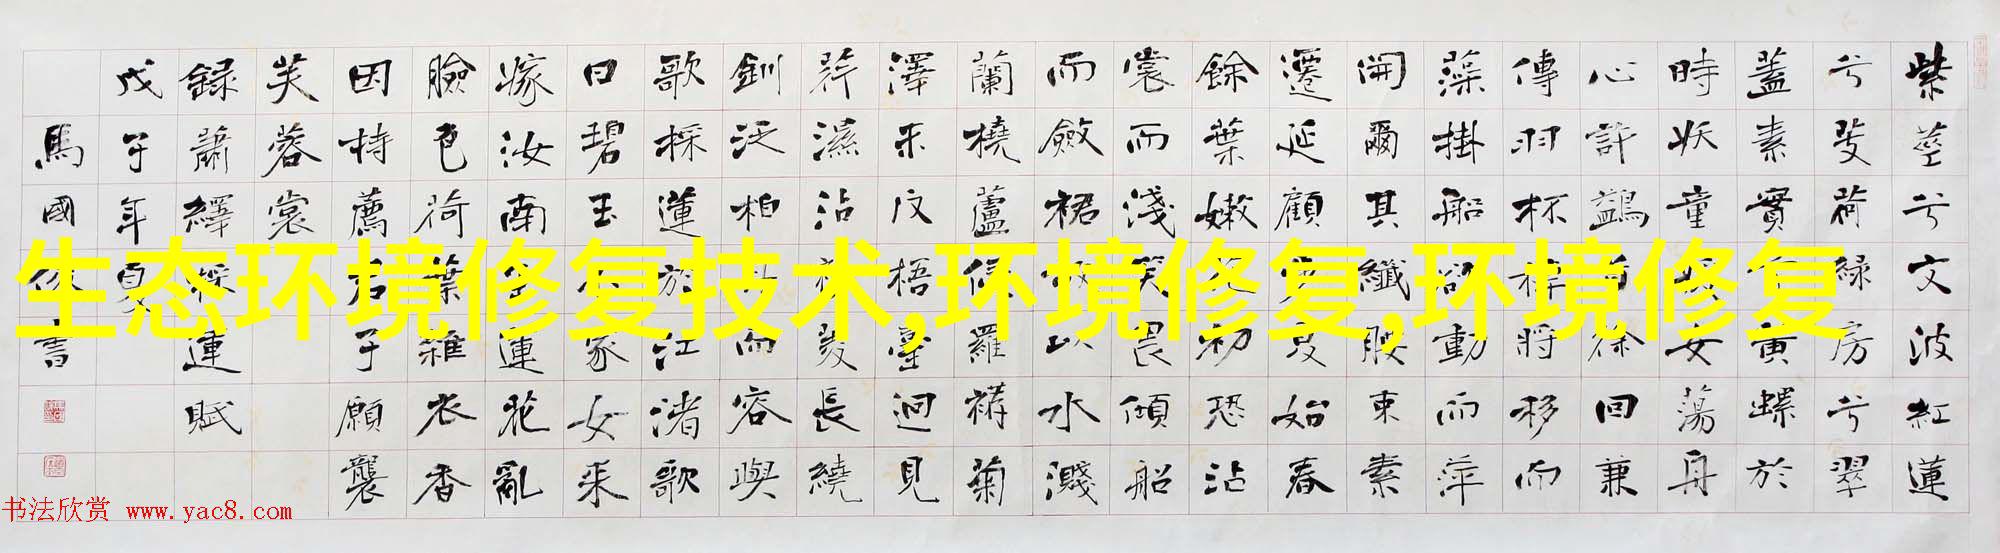 紫莖兮文波紅蓮
兮芰荷綠房兮翠
蓋素實兮黃螺於
時妖童媛女蕩舟
心許鷁首徐回兼
傳羽杯棹將移而
藻掛船欲動而萍
開爾其纖腰束素
遷延顧步夏始春
餘葉嫩花初恐沾
裳而淺笑畏傾船
而斂裾故以水濺
蘭橈蘆侵羅褠菊
澤未反梧臺迥見
荇濕沾衫菱長繞
釧泛柏舟而容與
歌採蓮於江渚歌
曰碧玉小家女来
嫁汝南王蓮花亂
臉色荷葉雜衣香
因持薦君子願襲
芙蓉裳
錄蕭繹採蓮賦
戊子年夏
馬國俊書
生态环境修复技术,环境修复,环境修复
书法欣赏 www.yac8.com